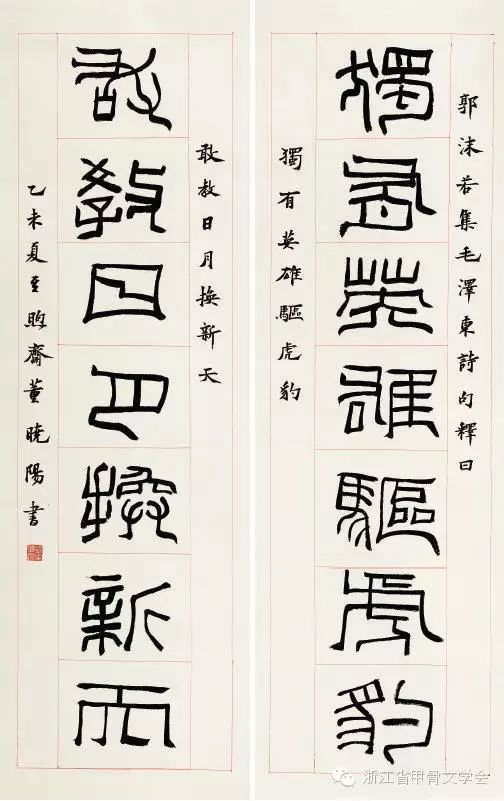 郭沫若集毛澤東詩句釋曰
獨有英雄驅虎豹
獨有英雄驅虎豹
敢教日月換新天
敢教日月換新天
乙未夏至煦齋董曉陽書
浙江省甲骨文学会